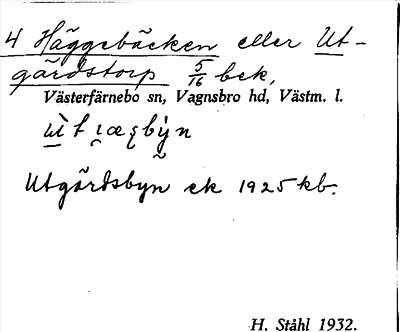 4 Häggebäcken eller Ut-
gårdstorp 5/16 bek,
Västerfärnebo sn, Vagnsbro hd, Västm. l.
Utgårdsbyn ek 1925 kb.
H. Ståhl 1932.